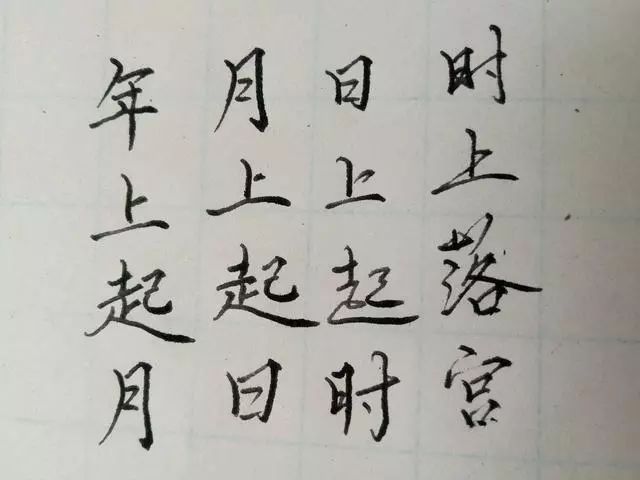 年上起月
月上起日
日上起时
时上落宫